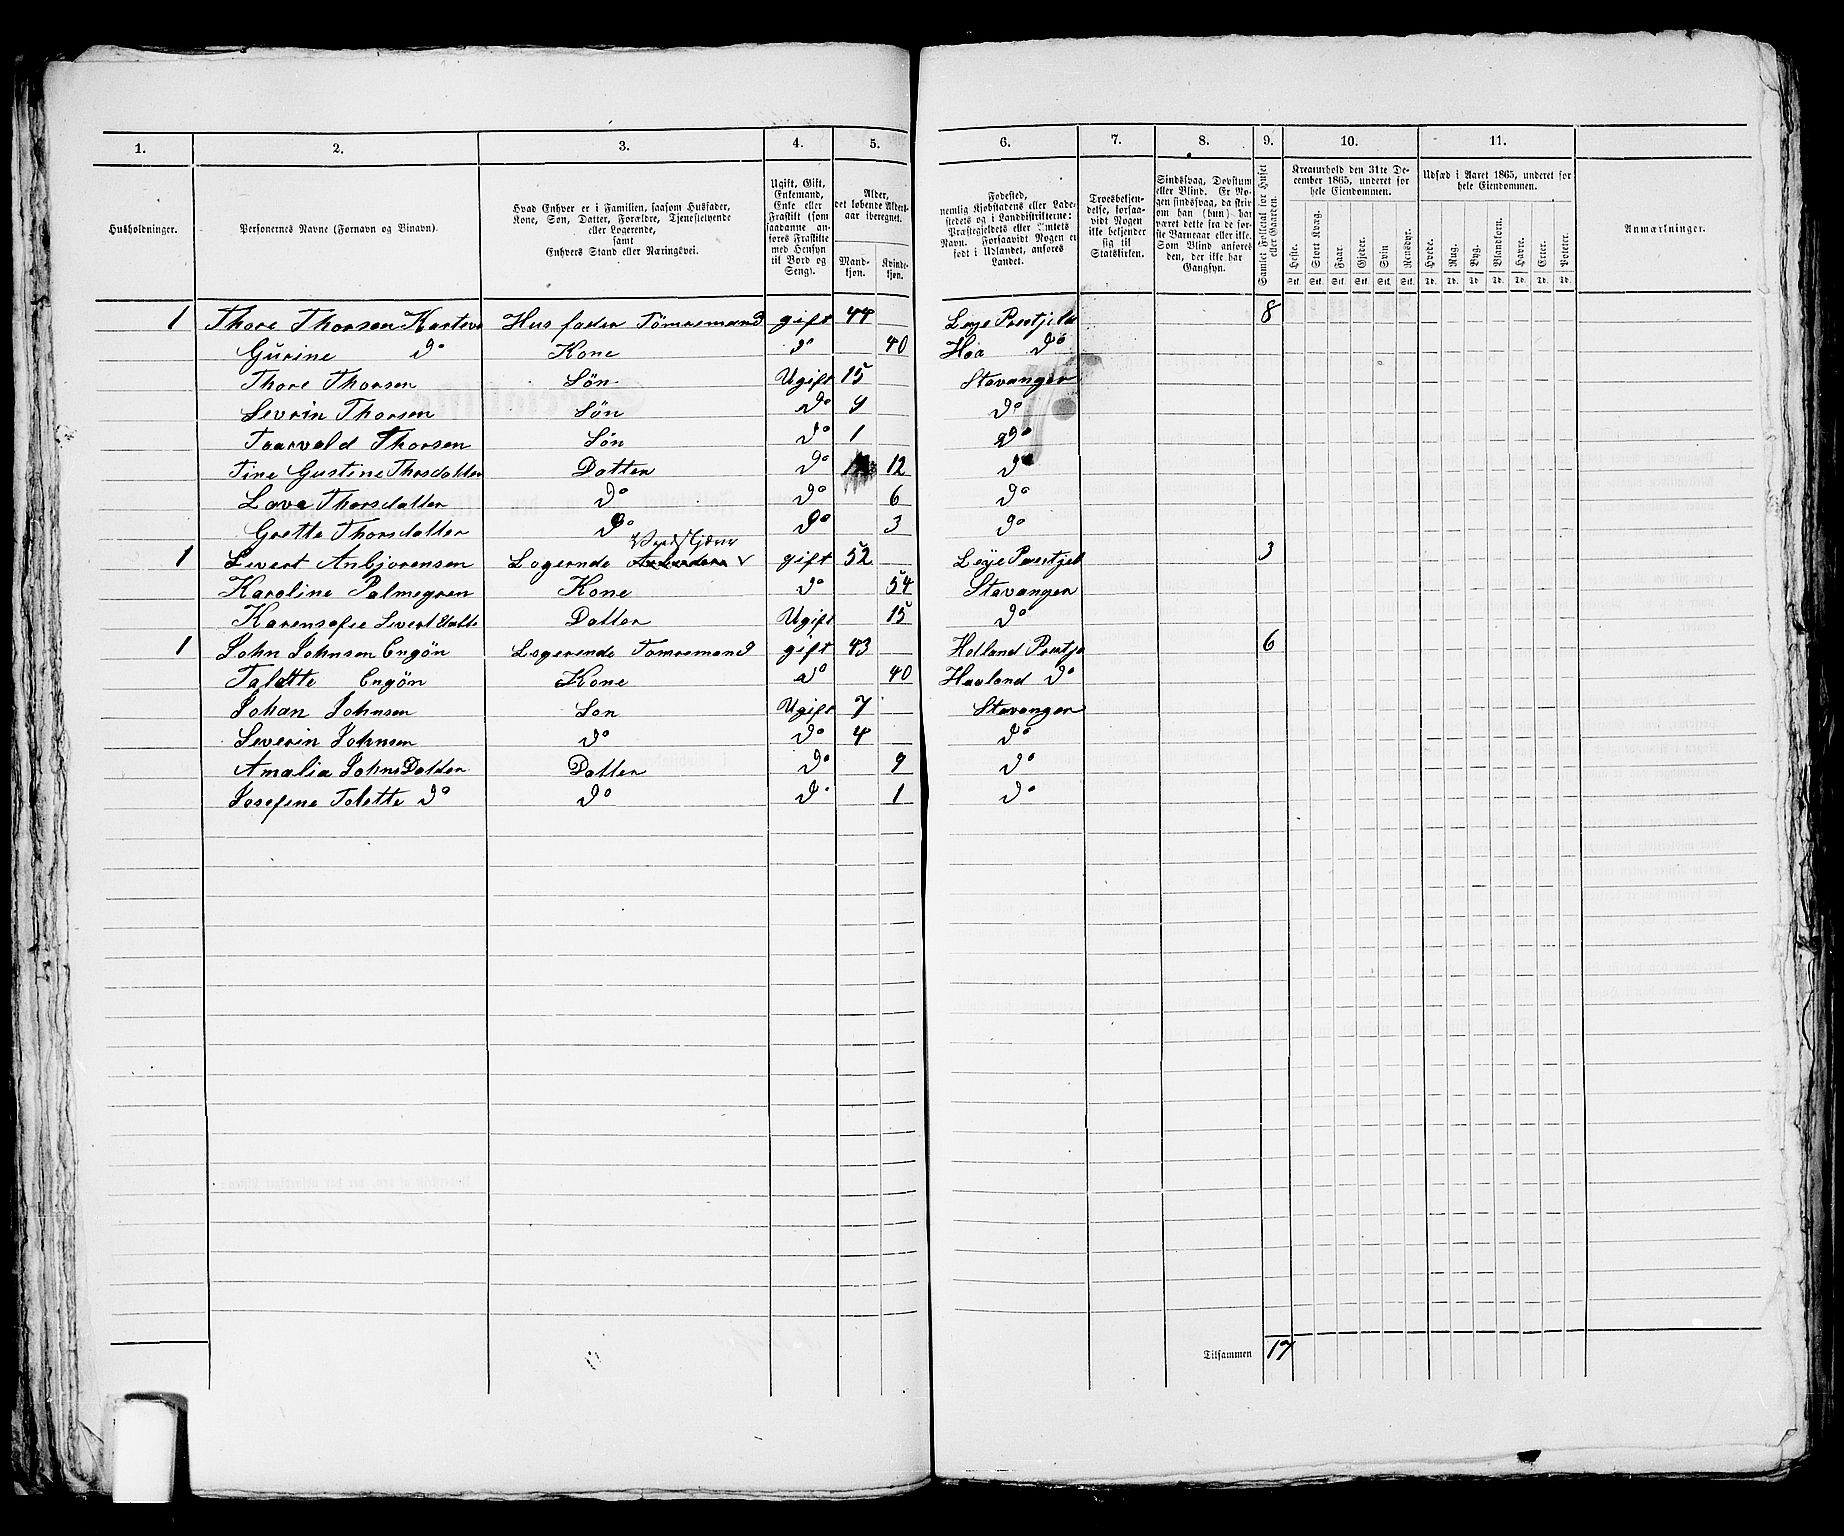 1. 2. 3. 4. 5. 6. 7. 8. 9. 10. 11.
Husholdninger.
Personernes Navne (Fornavn og Binavn).
Hvad Enhver er i Familien, saasom Husfader,
Kone, Søn, Datter, Forældre, Tjenestetyende
eller Logerende,
samt
Enhvers Stand eller Næringsvei.
Ugift, Gift,
Enkemand,
Enke eller
Fraskilt (som
saadanne an-
føres Fraskilte
med Hensyn
til Bord og
Seng).
Alder,
det løbende Alders-
aar iberegnet.
Mand-
kjøn.
Kvinde-
kjøn.
Fødested,
nemlig Kjøbstadens eller Lade-
stedets og i Landdistrikterne:
Præstegjeldets eller Amtets
Navn. Forsaavidt Nogen er
født i Udlandet, anføres
Landet.
Troesbekjen-
delse, forsaa-
vidt Nogen
ikke bekjender
sig til
Statskirken.
Sindssvag, Døvstum
eller Blind. Er No-
gen sindssvag, da skriv
om han (hun) har
været dette fra de før-
ste Barneaar eller ikke.
Som Blind anføres
den, der ikke har
Gangsyn.
Samlet Folketal for Huset
eller Gaarden.
Kreaturhold den 31te De-
cember 1865, underet for
hele Eiendommen.
Heste. Stort Kvæg. Faar. Gjeder. Svin Rensdyr.
Stk. Stk. Stk. Stk. Stk. Stk.
Udsæd i Aaret 1865, underet for
hele Eiendommen.
Hvede. Rug. Byg. Blandkorn. Havre. Erter. Poteter.
Td. Td. Td. Td. Td. Td. Td.
Anmærkninger.
1 Thore Thorsen Hus fader Tømremand gift 44 Leye Prestjeld 8
Gurine Do Kone do 40 Haa Do
Thore Thorsen Søn Ugift 15 Stavanger
Sevrin Thorsen Søn Do 9 Do
Taarvald Thorsen Søn Do 1 Do
Tine Gustine Thorsdatter Datter Do 12 Do
Lava Thorsdatter Do Do 6 Do
Grette Thorsdatter Do Do 3 Do
1 Sivert Anbjorensen Logernde gift 52 Leye Prestjel 3
Karoline Palmegren Kone do 54 Stavanger
Karensofie Sivert Datte Datter Ugift 15 Do
1 John Johnsen Engøn Logerende Tømremand gift 43 Hetland Prestje 6
Talette Engøn Kone do 40 Haaland Do
Johan Johnsen Søn Ugift 7 Stavanger
Severin Johnsen Do Do 4 Do
Amalia Johns Datter Datter Do 9 Do
Josefine Talette Do Do Do 1 Do
Tilsammen 17